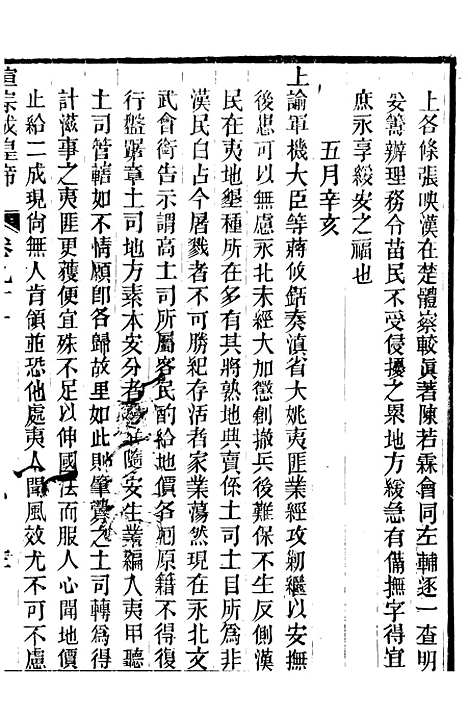 上各條張映漢在楚體察較眞著陳若霖會同左輔逐一查明
妥善辦理務令苗民不受侵擾之累地方緩急有備撫字得宜
庶永享綏安之福也
五月辛亥
上諭軍機大臣等蔣攸銛奏滇省大姚夷匪業經攻剿繼以安撫
後患可以無虞永北未經大加懲創撤兵後難保不生反側漢
民在夷地墾種所在多有其將熟地典賣係土司目所爲非
漢民白占今屠戮者不可勝紀存活者家業蕩然現在永北文
武會銜告示謂高土司所屬客民酌給地價各囘原籍不得復
行盤踞章土司地方素本安分者 隨安生業編入夷甲聽
土司管轄如不情願卽各歸故里如此則肇釁之土司轉爲得
計滋事之夷匪更獲便宜殊不足以伸國法而服人心聞地價
止給二成現尙無人肯領並恐他處夷人聞風效尤不可不慮
宣宗成皇帝 卷九十一